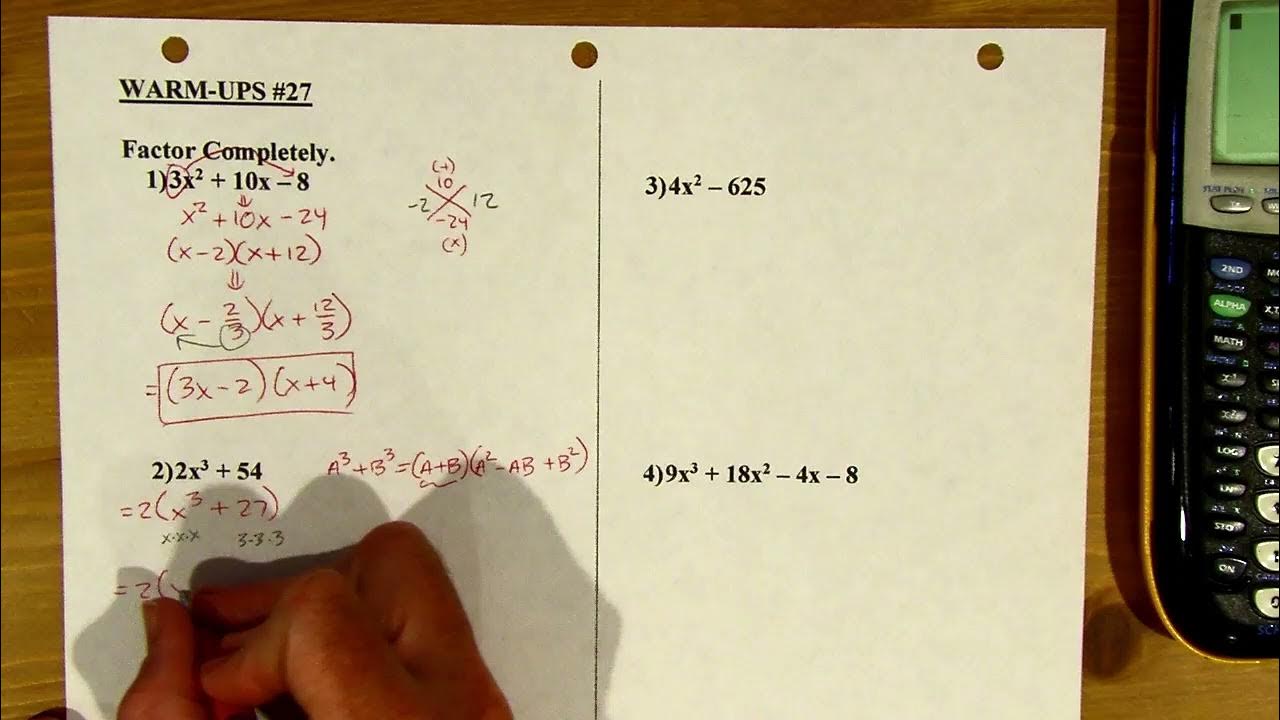 WARM-UPS #27
Factor Completely.
1)3x² + 10x – 8
x² + 10x - 24
(x-2)(x+12)
(x - 2/3)(x + 12/3)
= (3x-2)(x+4)
(+)
10
-2 12
-24
(x)
2)2x³ + 54
A³+B³=(A+B)(A²-AB+B²)
=2(x³+27)
x·x·x 3·3·3
=2(x
3)4x² – 625
4)9x³ + 18x² – 4x – 8
STAT PLOT
2ND
ALPHA
X,T
MATH
x⁻¹
x²
LOG
LN
STO
ON